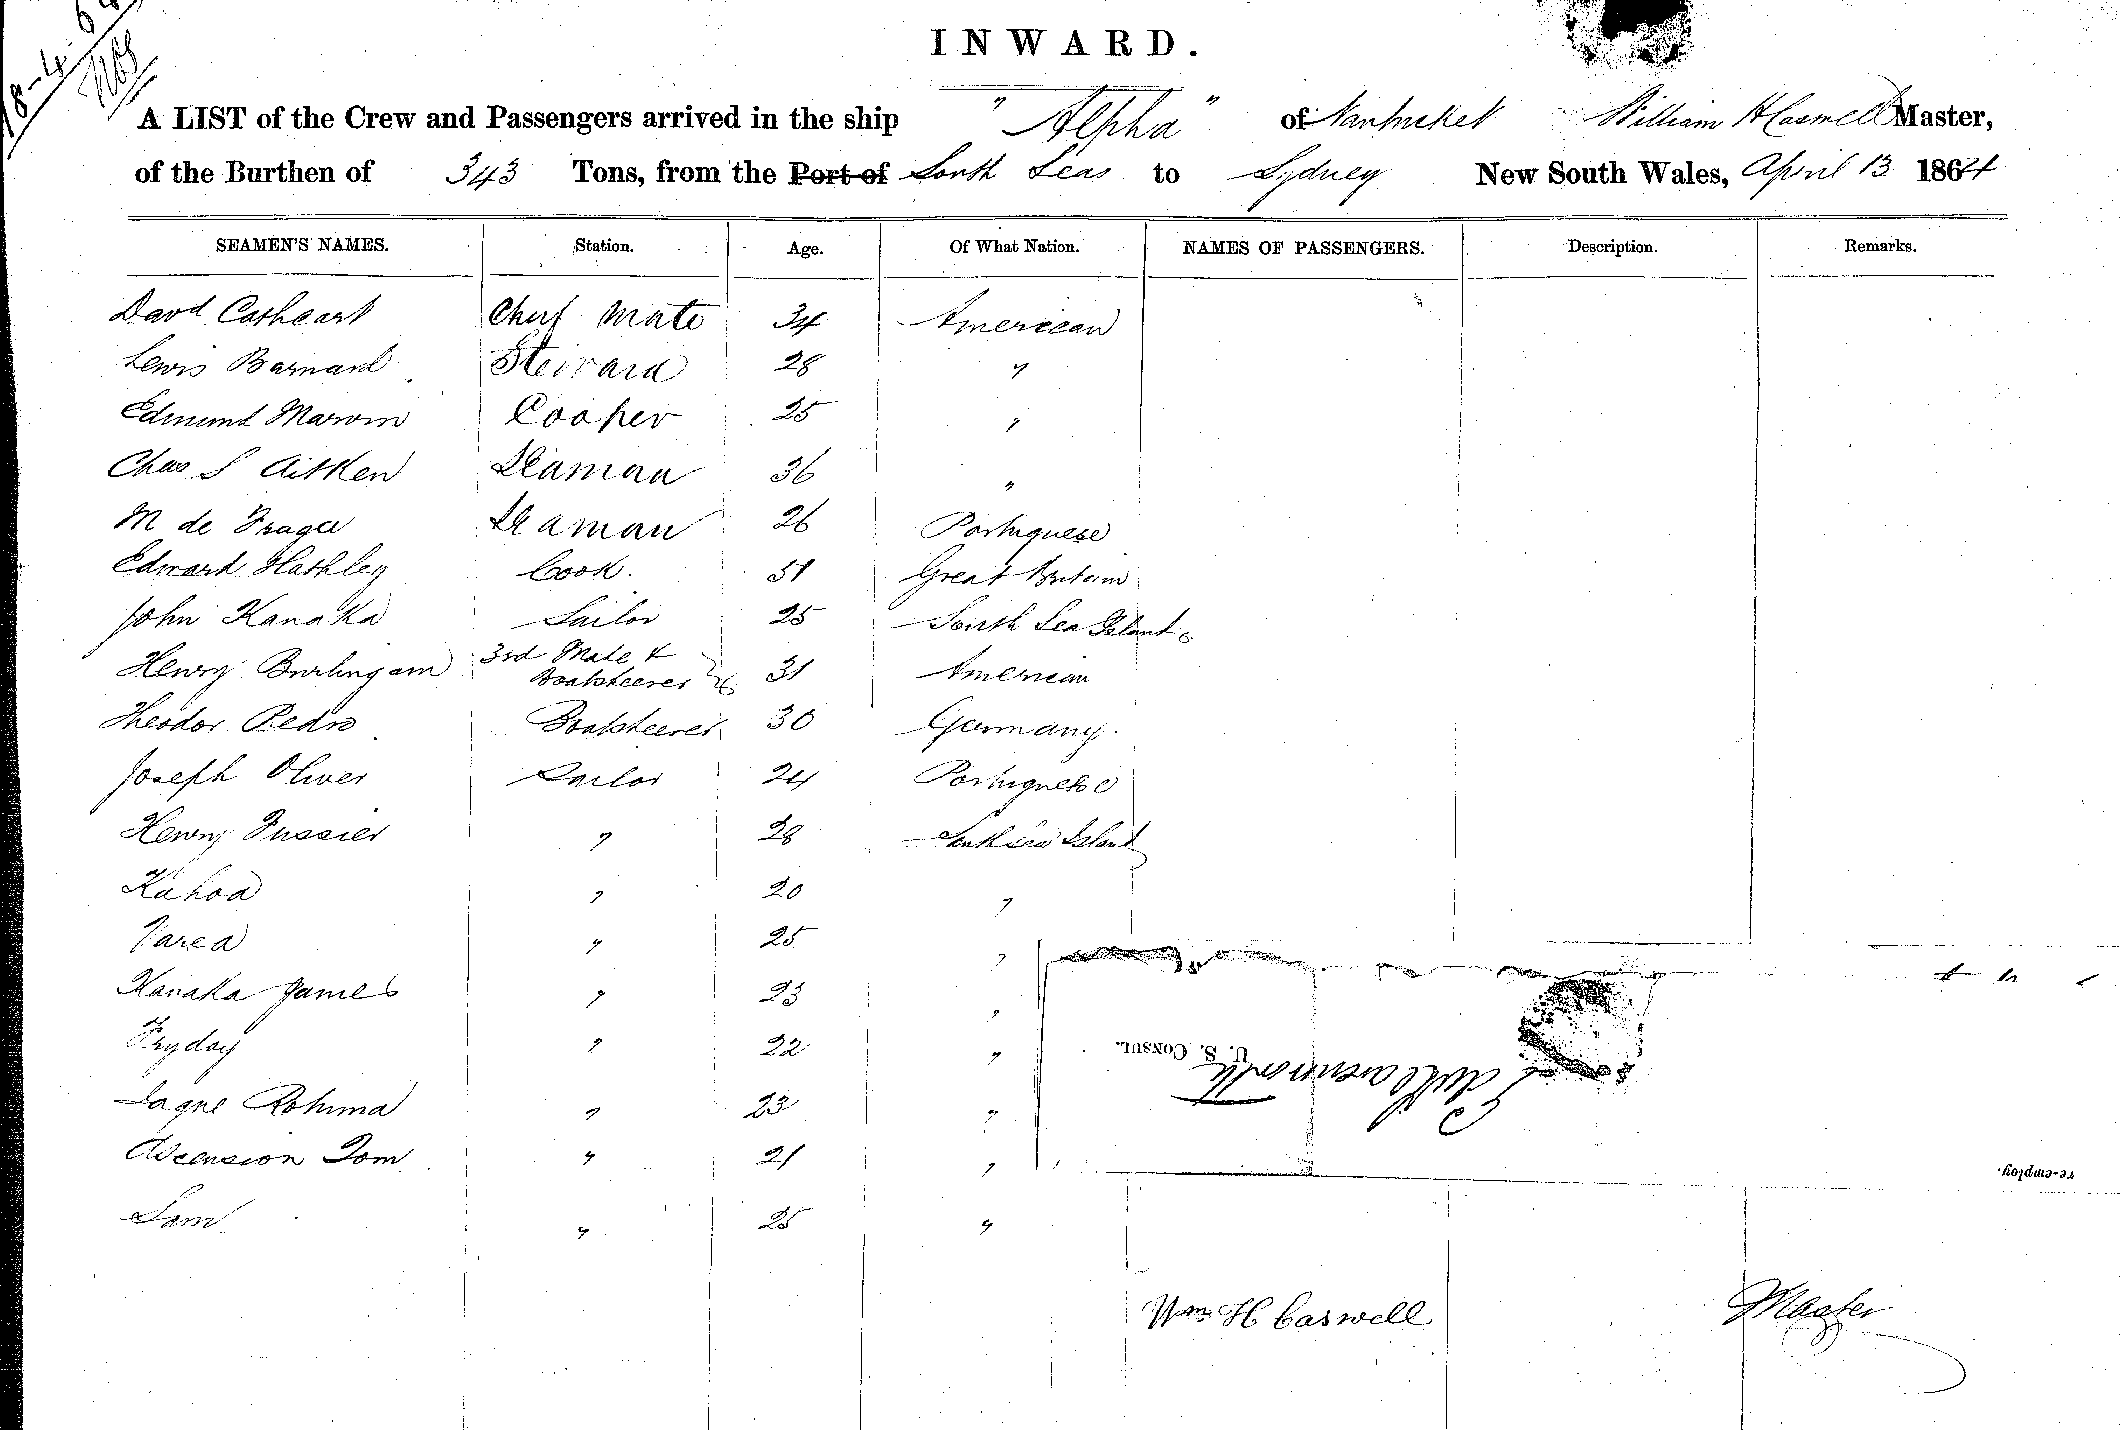 18-4-64
INWARD.
A LIST of the Crew and Passengers arrived in the ship "Alpha" of Nantucket William H Caswell Master,
of the Burthen of 343 Tons, from the Port of South Seas to Sydney New South Wales, April 13 1864
SEAMEN'S NAMES. Station. Age. Of What Nation. NAMES OF PASSENGERS. Description. Remarks.
Davd Cathcart Cheif Mate 34 American
Lewis Barnard Steward 28 "
Edmund Marvin Cooper 25 "
Chas S Aitken Seaman 36 "
M de Fraga Seaman 26 Portuguese
Edward Hathley Cook. 51 Great Britain
John Kanaka Sailor 25 South Sea Islands
Henry Burlingam 3rd Mate & Boatsteerer 31 American
Theodor Pedro Boatsteerer 30 Germany.
Joseph Oliver Sailor 24 Portuguese
Henry Fussier " 28 South Sea Island
Kahoa " 20 "
Parea " 25 "
Kanaka James " 23 "
Fryday " 22 "
Rohuma " 23 "
Ascension Tom " 21 "
Sam " 25 "
U. S. CONSUL.
re-employ.
Wm H Caswell Master